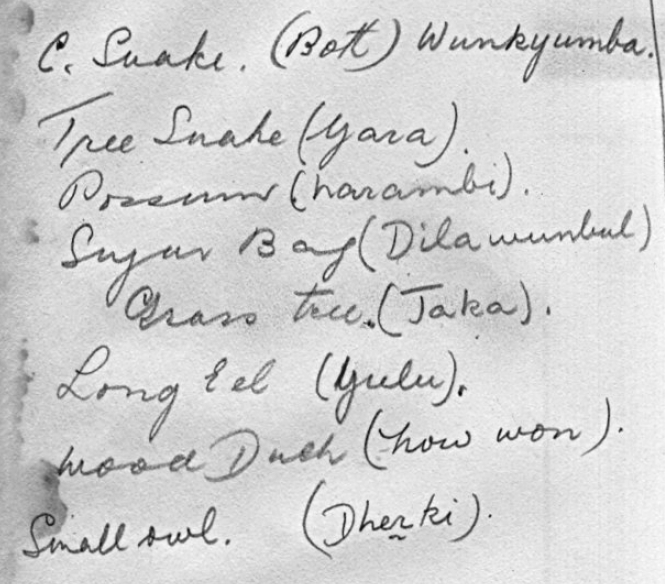 C. Snake. (Bott) Wunkyumba.
Tree Snake (Yara).
Possum (narambi).
Sugar Bag (Dilawunbul)
Grass tree. (Taka).
Long Eel (Yulu).
Wood Duck (how won).
Small owl. (Dherki).